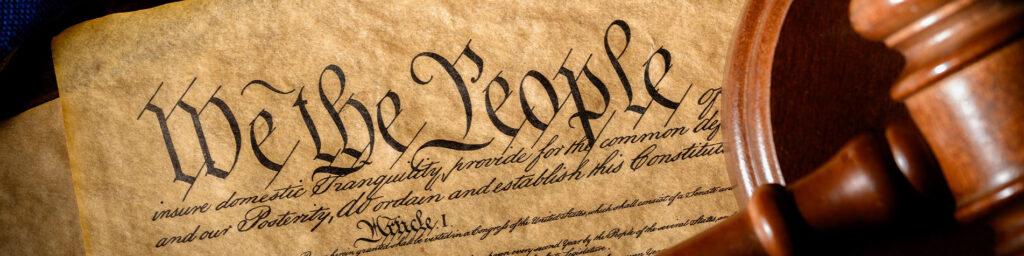 We the People of
insure domestic Tranquility, provide for the common def
and our Posterity, do ordain and establish this Constitut
Article I.
granted shall be vested in a Congress of the United States, which shall consist of a Senate and
every second Year by the People of the several States, an
Legislature.